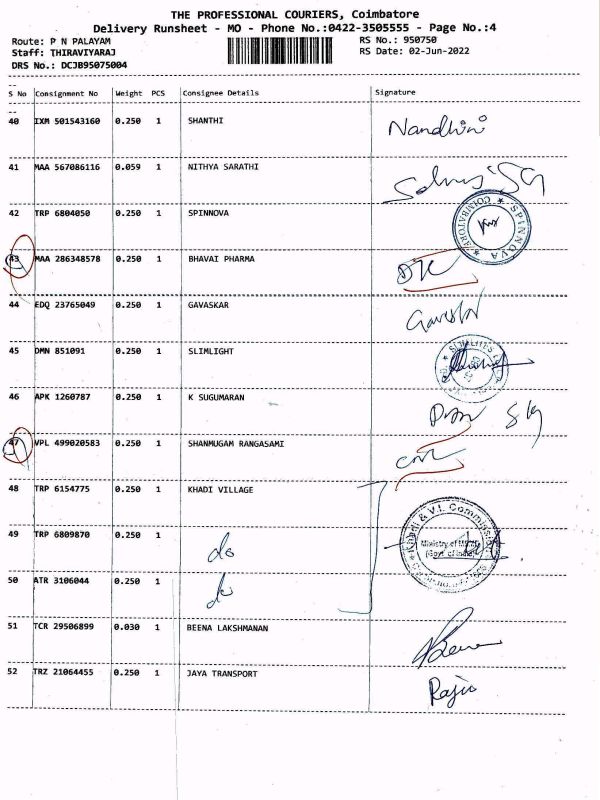 THE PROFESSIONAL COURIERS, Coimbatore
Delivery Runsheet - MO - Phone No.:0422-3505555 - Page No.:4
Route: P N PALAYAM RS No.: 950750
Staff: THIRAVIYARAJ RS Date: 02-Jun-2022
DRS No.: DCJB95075004
--
S No Consignment No Weight PCS Consignee Details Signature
--
40 IXM 501543160 0.250 1 SHANTHI Nandhini
41 MAA 567086116 0.059 1 NITHYA SARATHI
42 TRP 6804050 0.250 1 SPINNOVA
* SPINNOVA * COIMBATORE
43 MAA 286348578 0.250 1 BHAVAI PHARMA
44 EDQ 23765049 0.250 1 GAVASKAR
45 DMN 851091 0.250 1 SLIMLIGHT
46 APK 1260787 0.250 1 K SUGUMARAN
47 VPL 499020583 0.250 1 SHANMUGAM RANGASAMI
48 TRP 6154775 0.250 1 KHADI VILLAGE
Khadi & V.I. Commission
Ministry of
(Govt of India)
49 TRP 6809870 0.250 1 do
50 ATR 3106044 0.250 1 do
51 TCR 29506899 0.030 1 BEENA LAKSHMANAN
52 TRZ 21064455 0.250 1 JAYA TRANSPORT Rajiv